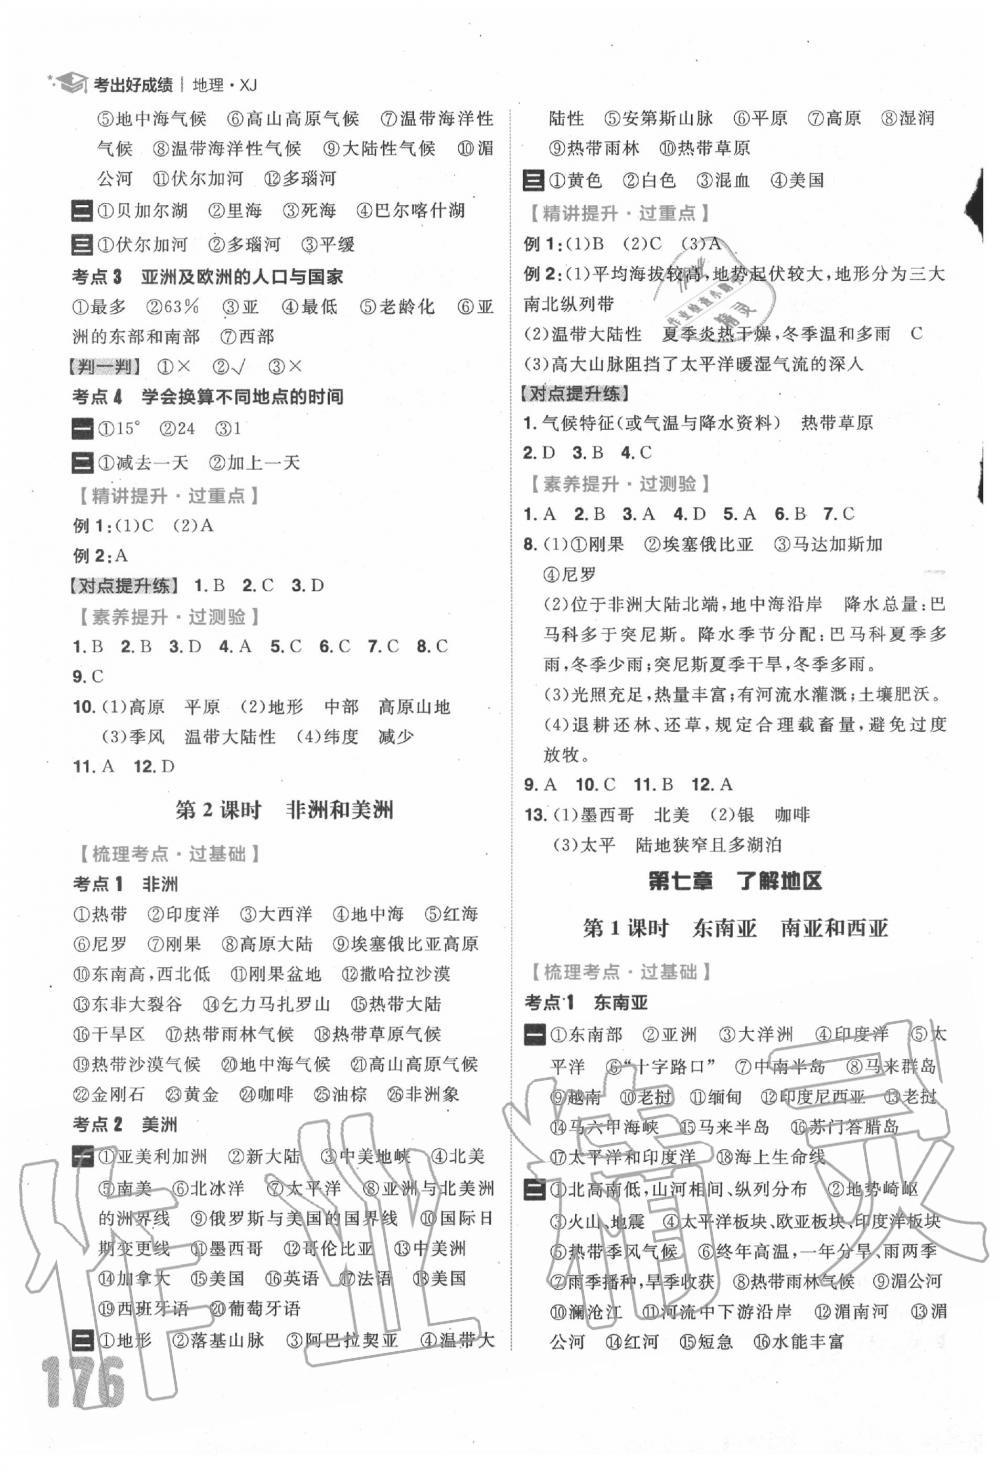 考出好成绩 | 地理·XJ
⑤地中海气候 ⑥高山高原气候 ⑦温带海洋性
气候 ⑧温带海洋性气候 ⑨大陆性气候 ⑩湄
公河 ⑪伏尔加河 ⑫多瑙河
二 ①贝加尔湖 ②里海 ③死海 ④巴尔喀什湖
三 ①伏尔加河 ②多瑙河 ③平缓
考点3 亚洲及欧洲的人口与国家
①最多 ②63% ③亚 ④最低 ⑤老龄化 ⑥亚
洲的东部和南部 ⑦西部
【判一判】 ①× ②√ ③×
考点4 学会换算不同地点的时间
一 ①15° ②24 ③1
二 ①减去一天 ②加上一天
【精讲提升·过重点】
例1:(1)C (2)A
例2:A
【对点提升练】 1.B 2.C 3.D
【素养提升·过测验】
1.B 2.B 3.D 4.A 5.C 6.C 7.C 8.C
9.C
10.(1)高原 平原 (2)地形 中部 高原山地
(3)季风 温带大陆性 (4)纬度 减少
11.A 12.D
第2课时 非洲和美洲
【梳理考点·过基础】
考点1 非洲
①热带 ②印度洋 ③大西洋 ④地中海 ⑤红海
⑥尼罗 ⑦刚果 ⑧高原大陆 ⑨埃塞俄比亚高原
⑩东南高,西北低 ⑪刚果盆地 ⑫撒哈拉沙漠
⑬东非大裂谷 ⑭乞力马扎罗山 ⑮热带大陆
⑯干旱区 ⑰热带雨林气候 ⑱热带草原气候
⑲热带沙漠气候 ⑳地中海气候 ㉑高山高原气候
㉒金刚石 ㉓黄金 ㉔咖啡 ㉕油棕 ㉖非洲象
考点2 美洲
一 ①亚美利加洲 ②新大陆 ③中美地峡 ④北美
⑤南美 ⑥北冰洋 ⑦太平洋 ⑧亚洲与北美洲
的洲界线 ⑨俄罗斯与美国的国界线 ⑩国际日
期变更线 ⑪墨西哥 ⑫哥伦比亚 ⑬中美洲
⑭加拿大 ⑮美国 ⑯英语 ⑰法语 ⑱美国
⑲西班牙语 ⑳葡萄牙语
二 ①地形 ②落基山脉 ③阿巴拉契亚 ④温带大
176
陆性 ⑤安第斯山脉 ⑥平原 ⑦高原 ⑧湿润
⑨热带雨林 ⑩热带草原
三 ①黄色 ②白色 ③混血 ④美国
【精讲提升·过重点】
例1:(1)B (2)C (3)A
例2:(1)平均海拔较高,地势起伏较大,地形分为三大
南北纵列带
(2)温带大陆性 夏季炎热干燥,冬季温和多雨 C
(3)高大山脉阻挡了太平洋暖湿气流的深入
【对点提升练】
1.气候特征(或气温与降水资料) 热带草原
2.D 3.B 4.C
【素养提升·过测验】
1.A 2.B 3.D 4.D 5.A 6.B 7.C
8.(1)①刚果 ②埃塞俄比亚 ③马达加斯加
④尼罗
(2)位于非洲大陆北端,地中海沿岸 降水总量:巴
马科多于突尼斯。降水季节分配:巴马科夏季多
雨,冬季少雨;突尼斯夏季干旱,冬季多雨。
(3)光照充足,热量丰富;有河流水灌溉;土壤肥沃。
(4)退耕还林、还草,规定合理载畜量,避免过度
放牧。
9.A 10.C 11.B 12.A
13.(1)墨西哥 北美 (2)银 咖啡
(3)太平 陆地狭窄且多湖泊
第七章 了解地区
第1课时 东南亚 南亚和西亚
【梳理考点·过基础】
考点1 东南亚
一 ①东南部 ②亚洲 ③大洋洲 ④印度洋 ⑤太
平洋 ⑥“十字路口” ⑦中南半岛 ⑧马来群岛
⑨越南 ⑩老挝 ⑪缅甸 ⑫印度尼西亚 ⑬老挝
⑭马六甲海峡 ⑮马来半岛 ⑯苏门答腊岛
⑰太平洋和印度洋 ⑱海上生命线
二 ①北高南低,山河相间、纵列分布 ②地势崎岖
③火山、地震 ④太平洋板块、欧亚板块、印度洋板块
⑤热带季风气候 ⑥终年高温,一年分旱、雨两季
⑦雨季播种,旱季收获 ⑧热带雨林气候 ⑨湄公河
⑩澜沧江 ⑪河流中下游沿岸 ⑫湄南河 ⑬湄
公河 ⑭红河 ⑮短急 ⑯水能丰富
作业精灵